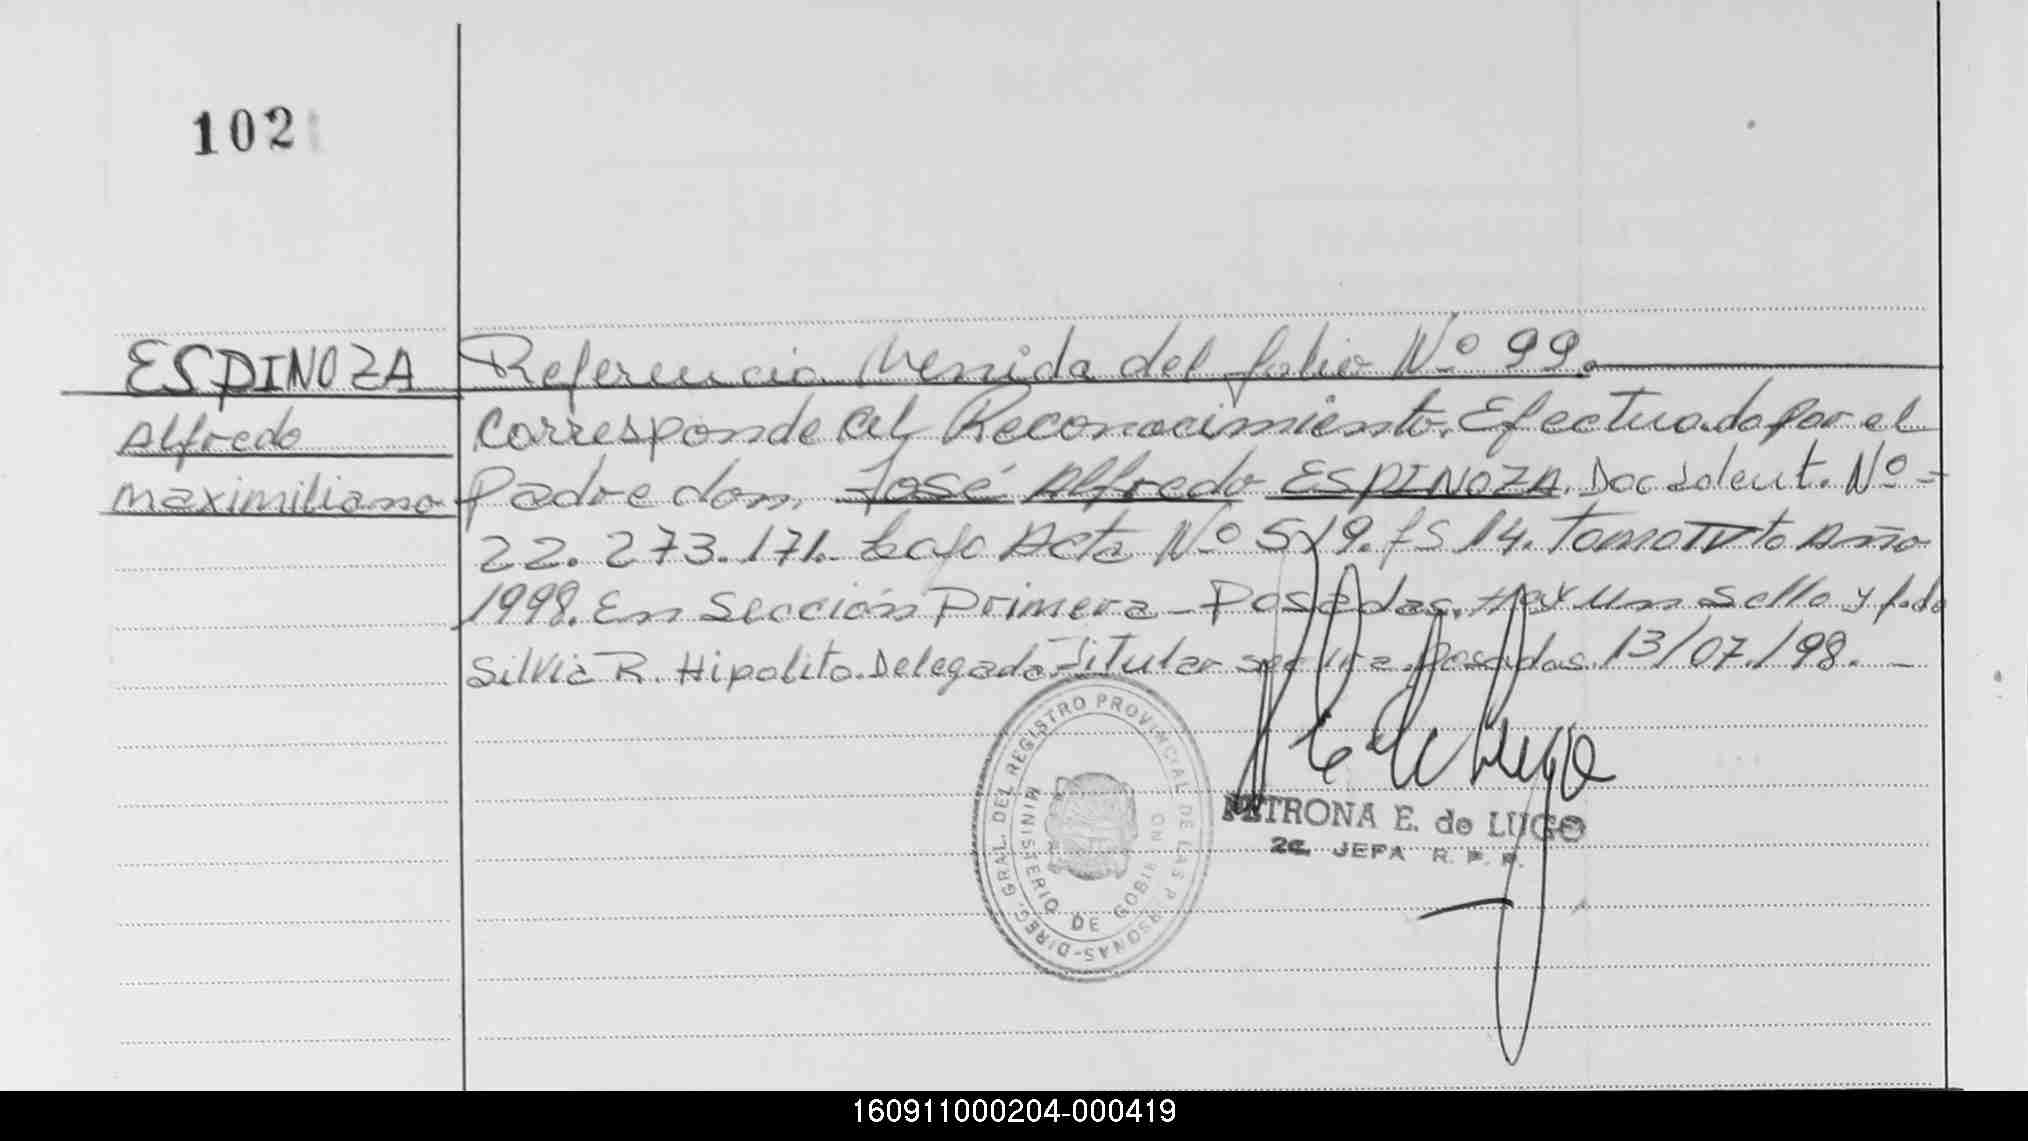 102
ESPINOZA
Alfredo
maximiliano
Referencia Venida del folio Nº 99.
Corresponde al Reconocimiento. Efectuado por el
Padre don, José Alfredo ESPINOZA. Doc Ident. Nº-
22.273.171. bajo Acta Nº 519. fs 14. Tomo to Año
1998. En Sección Primera - Posadas. Hay un sello y fdo
Silvia R. Hipolito. Delegada Titular sec 1ra. Posadas. 13/07/98. -
DIREC. GRAL. DEL REGISTRO PROVINCIAL DE LAS PERSONAS-
MINISTERIO DE GOBIERNO
PETRONA E. de LUGO
JEFA R. P. P.
160911000204-000419